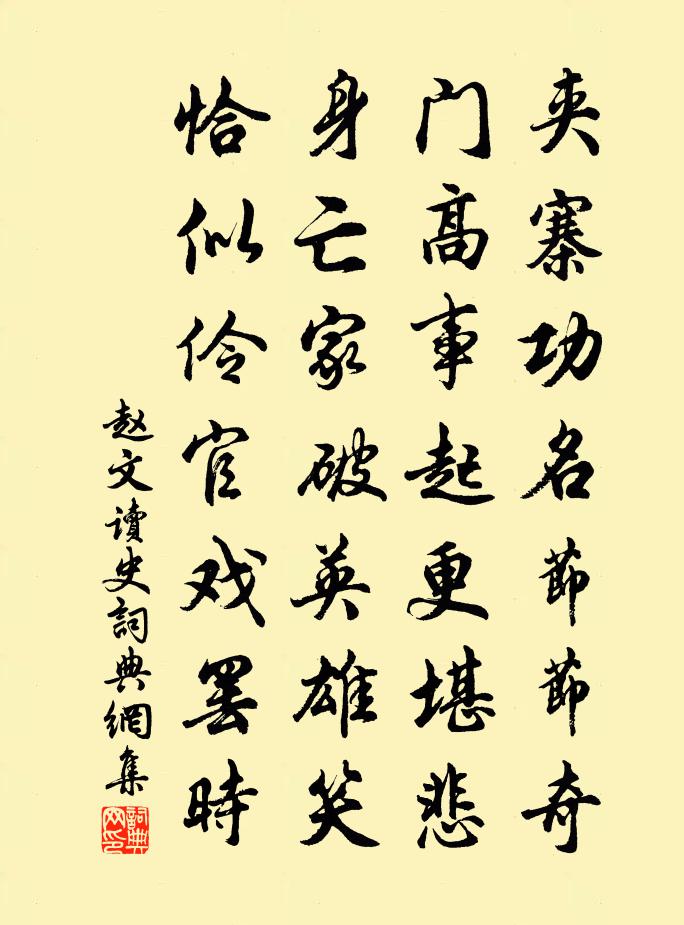 夹寨功名節節奇
门高事起更堪悲
身亡家破英雄笑
恰似伶官戏罢時
赵文读史詞典網集
詞典网印